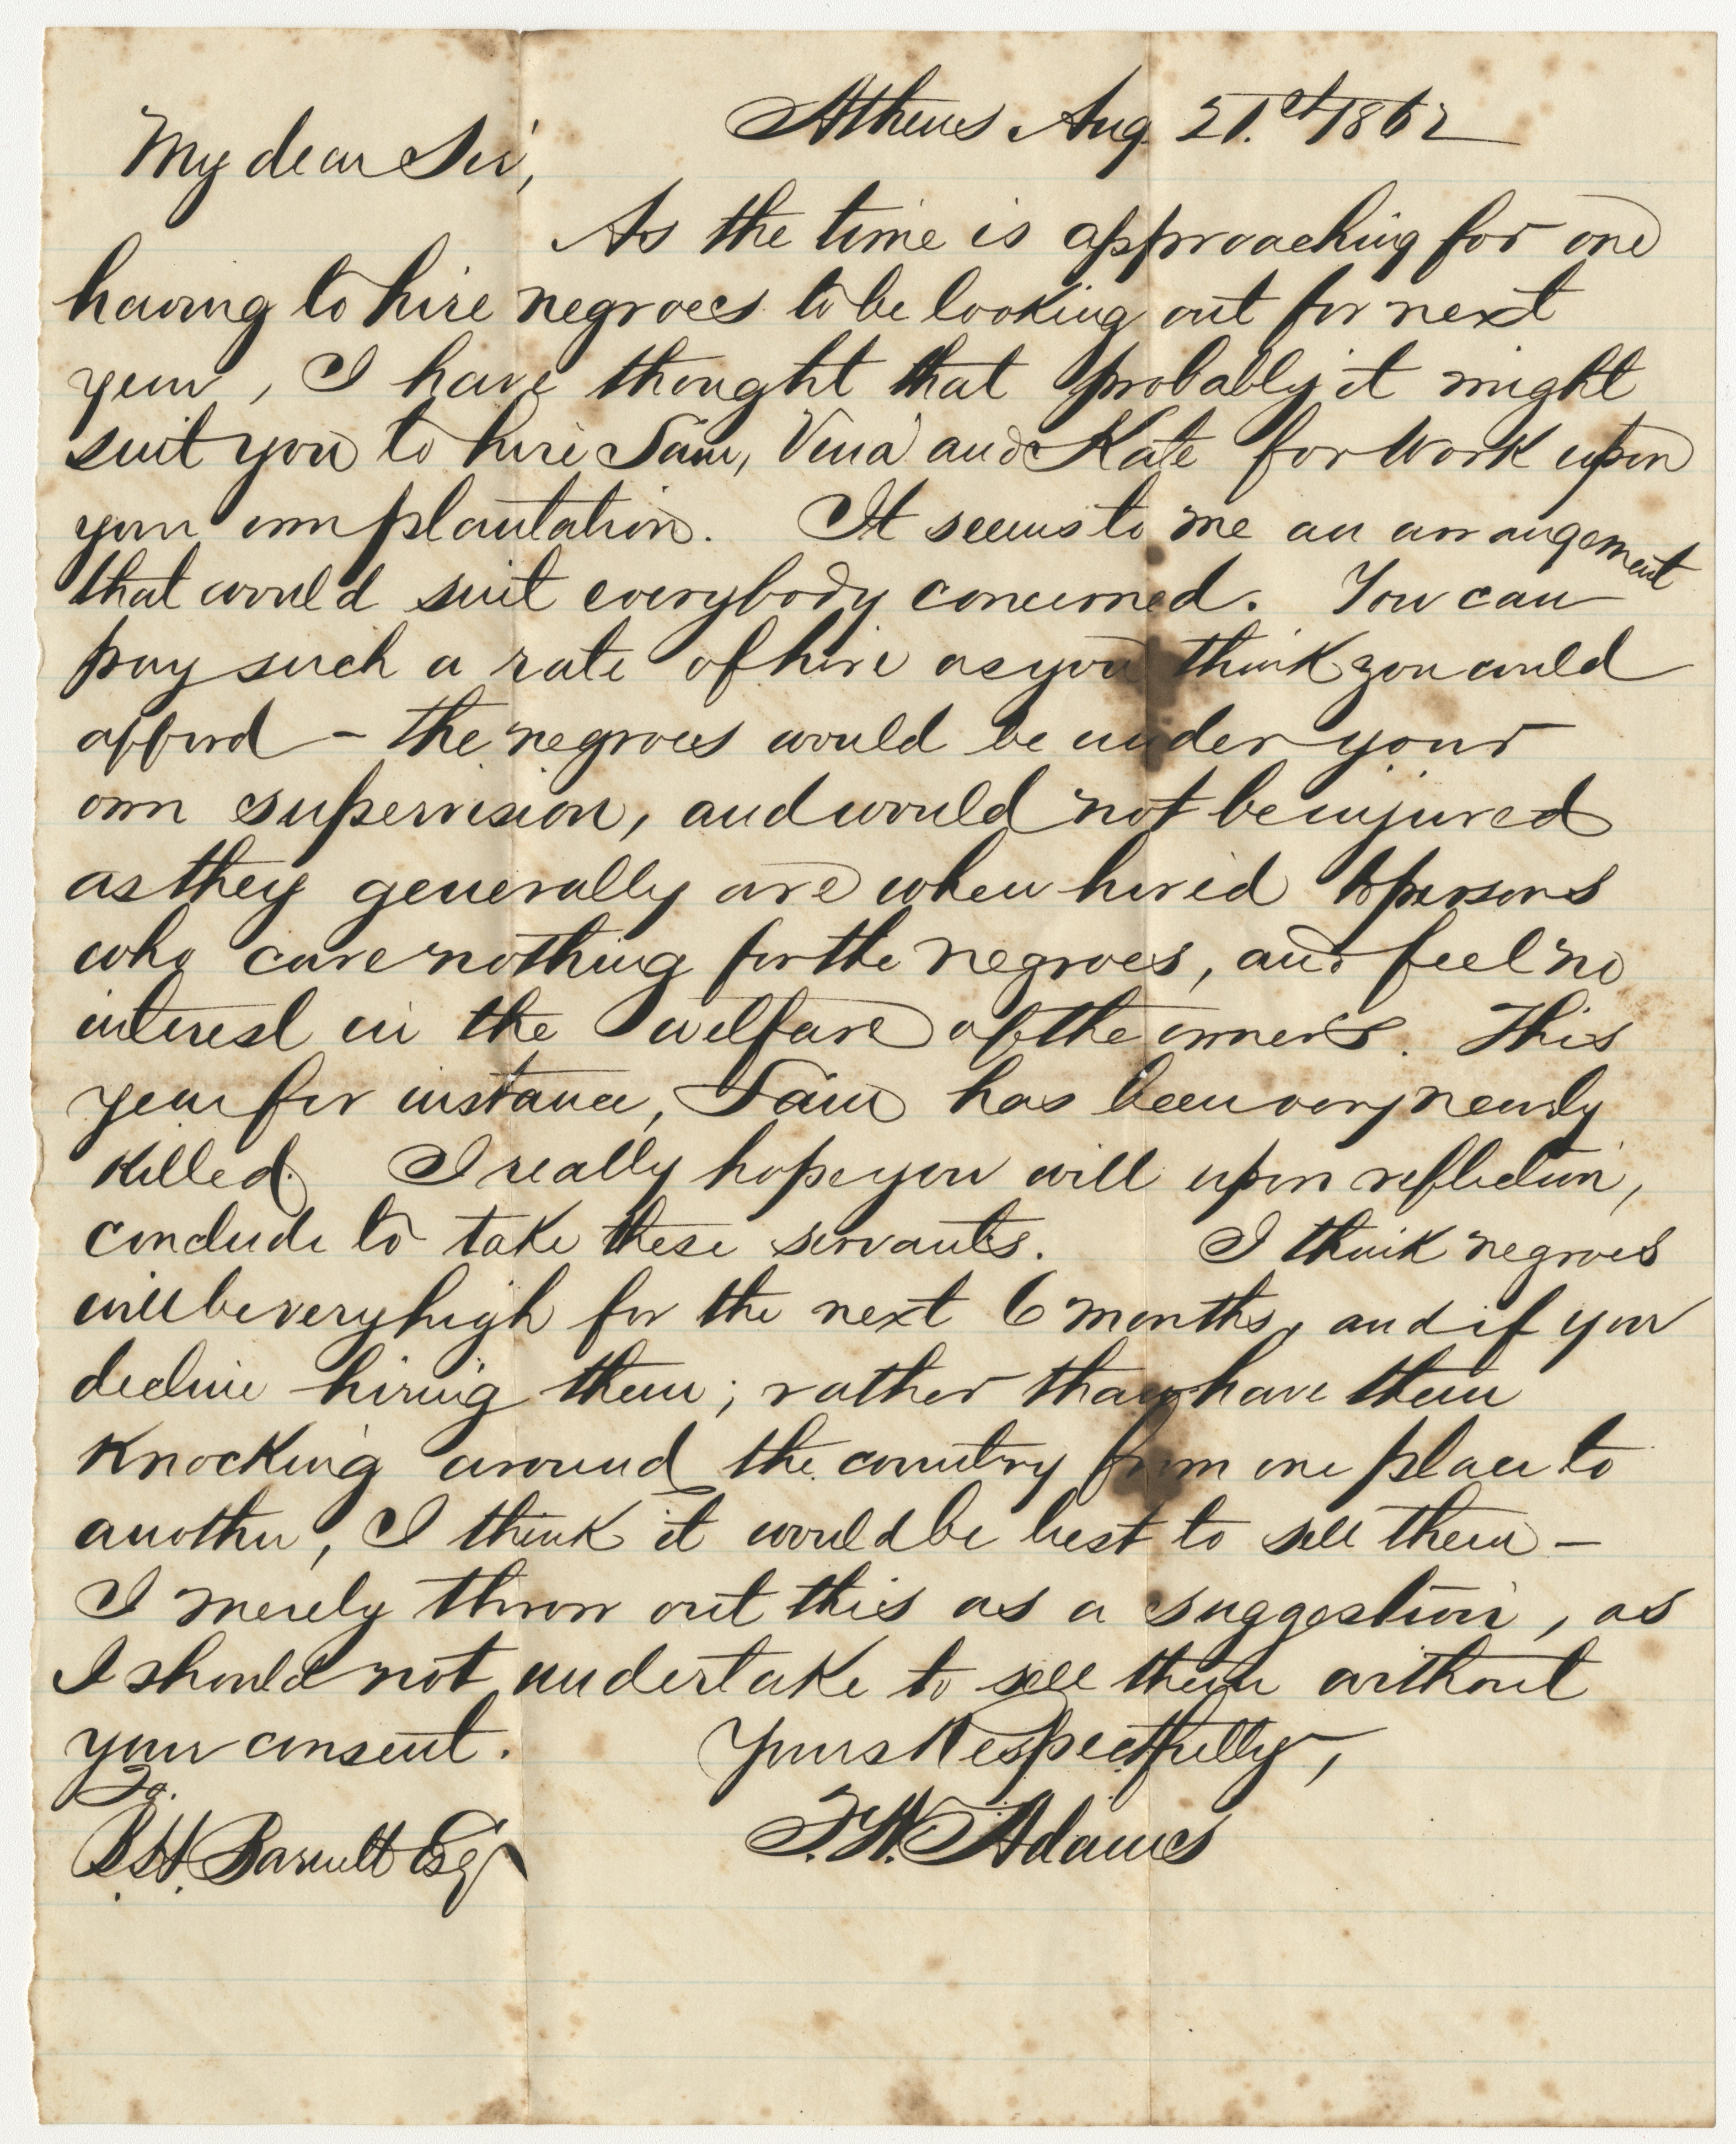 Athens Aug. 21.st/1862
My dear Sir,
As the time is approaching for one
having to hire negroes to be looking out for next
year, I have thought that probably it might
suit you to hire Sam, Vina and Kate for work upon
your own plantation. It seems to me an arrangement
that would suit everybody concerned. You can
pay such a rate of hire as you think you could
afford – the negroes would be under your
own supervision, and would not be injured
as they generally are when hired to persons
who care nothing for the negroes, and feel no
interest in the welfare of the owners. This
year for instance, Sam has been very nearly
killed. I really hope you will upon reflection,
conclude to take these servants. I think negroes
will be very high for the next 6 months, and if you
decline hiring them; rather than have them
knocking around the country from one place to
another, I think it would be best to sell them –
I merely throw out this as a suggestion, as
I should not undertake to sell them without
your consent. Yours Respectfully,
To.
Barnett Esq
F.W. Adams